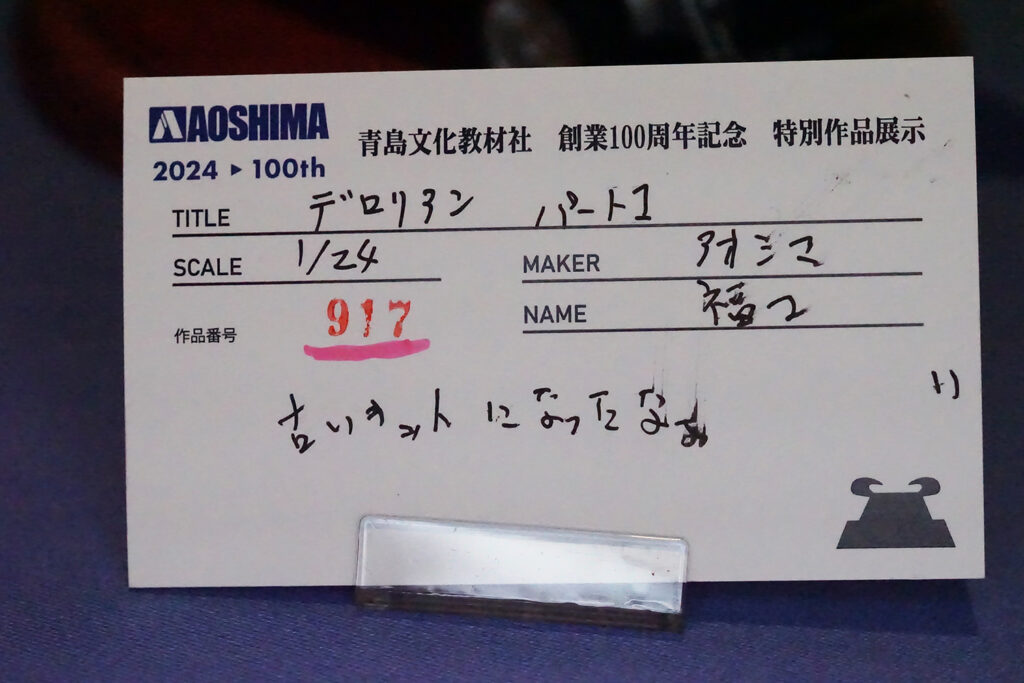 AOSHIMA
2024 ▶ 100th
青島文化教材社 創業100周年記念 特別作品展示
TITLE デロリアン パート1
SCALE 1/24
MAKER アオシマ
NAME 福マ
作品番号 917
古いキットになったなぁ